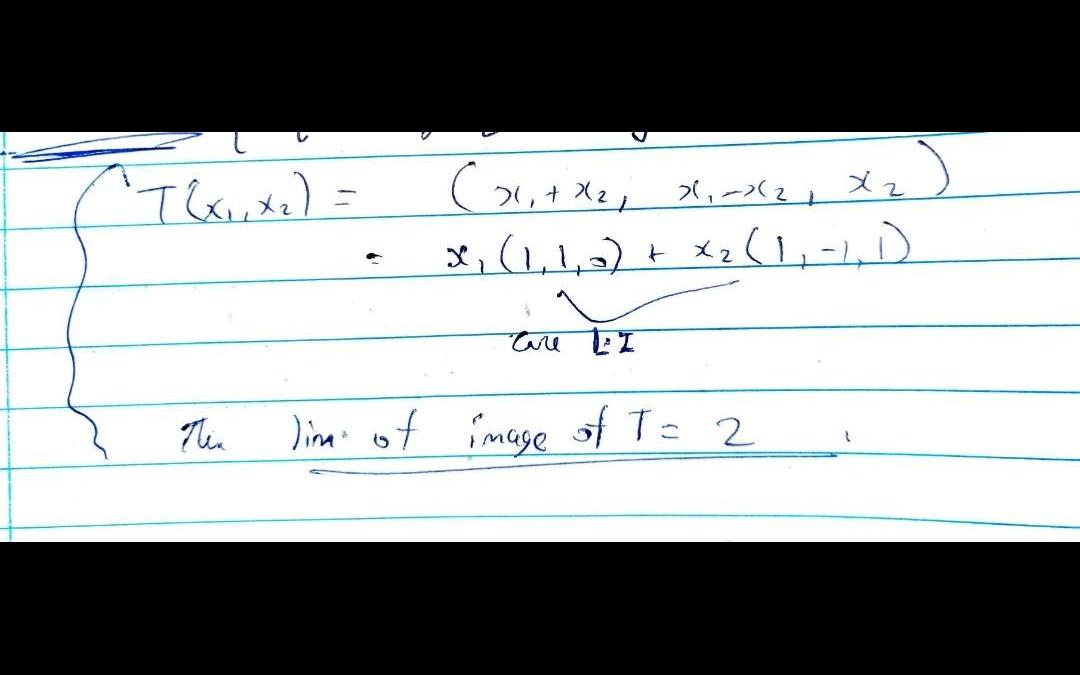 T(x₁,x₂) = (x₁+x₂, x₁-x₂, x₂)
= x₁(1,1,0) + x₂(1,-1,1)
are L.I
Then dim. of image of T = 2